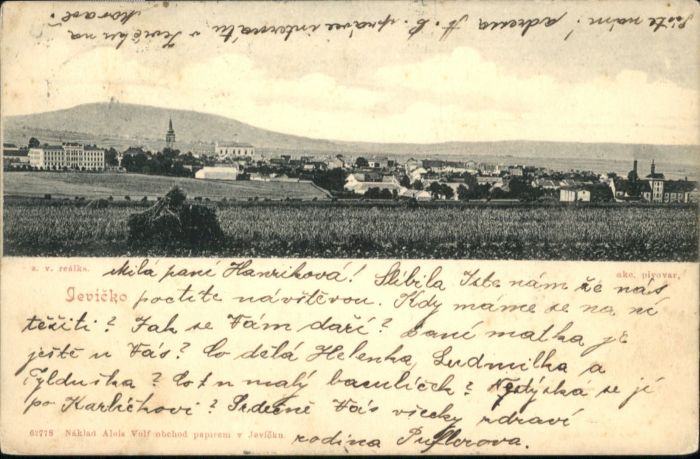 Pište nám! adresa A. C. správce internátu v Jevíčku na
Moravě.
z. v. reálka.
akc. pivovar.
Jevíčko
Milá paní Hanriková! Slíbila jste nám že nás
poctíte návštěvou. Kdy máme se na ni
těšiti? Jak se Vám daří? Paní matka je
ještě u Vás? Co dělá Helenka, Ludmilka a
Tylduška? Co t. n. malý baculíček? Nestýská se jí
po Karlíčkovi? Srdečně Vás všecky zdraví
rodina Puflerova.
62778 Náklad Alois Volf obchod papírem v Jevíčku